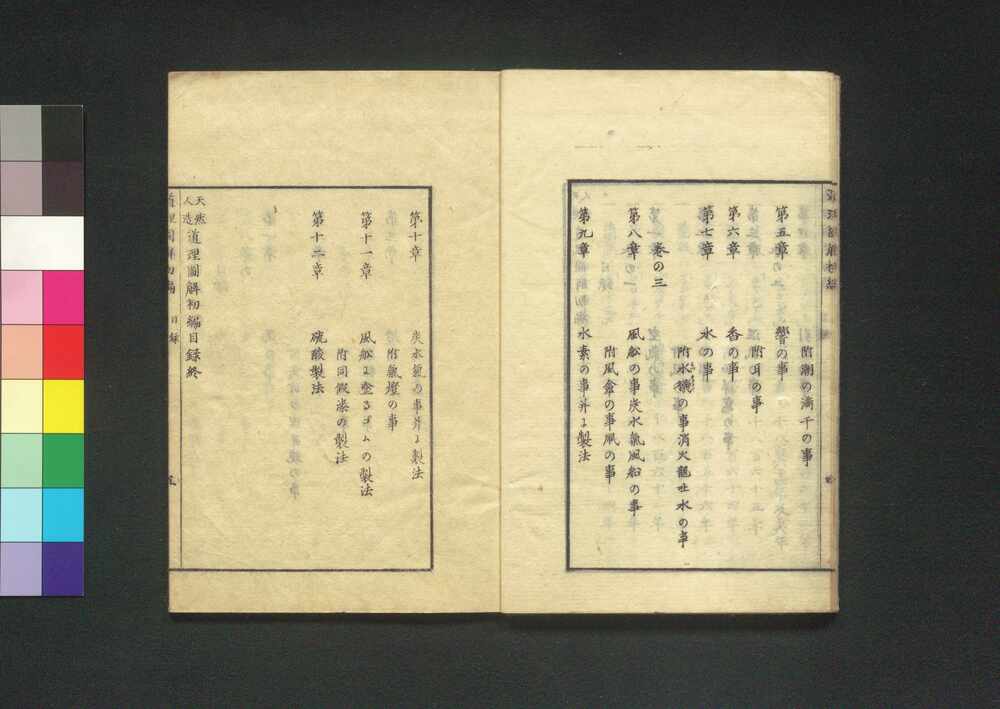 附潮の満干の事
第五章 響の事
附耳の事
第六章 香の事
第七章 水の事
附水機の事消火龍吐水の事
巻の三
第八章 風舩の事炭水氣風船の事
附風傘の事風の事
第九章 水素の事并に製法
第十章 炭水氣の事并に製法
附氣燈の事
第十一章 風舩に塗るゴムの製法
附同假漆の製法
第十二章 硫酸製法
天然人造道理圖解初編目録終
目録